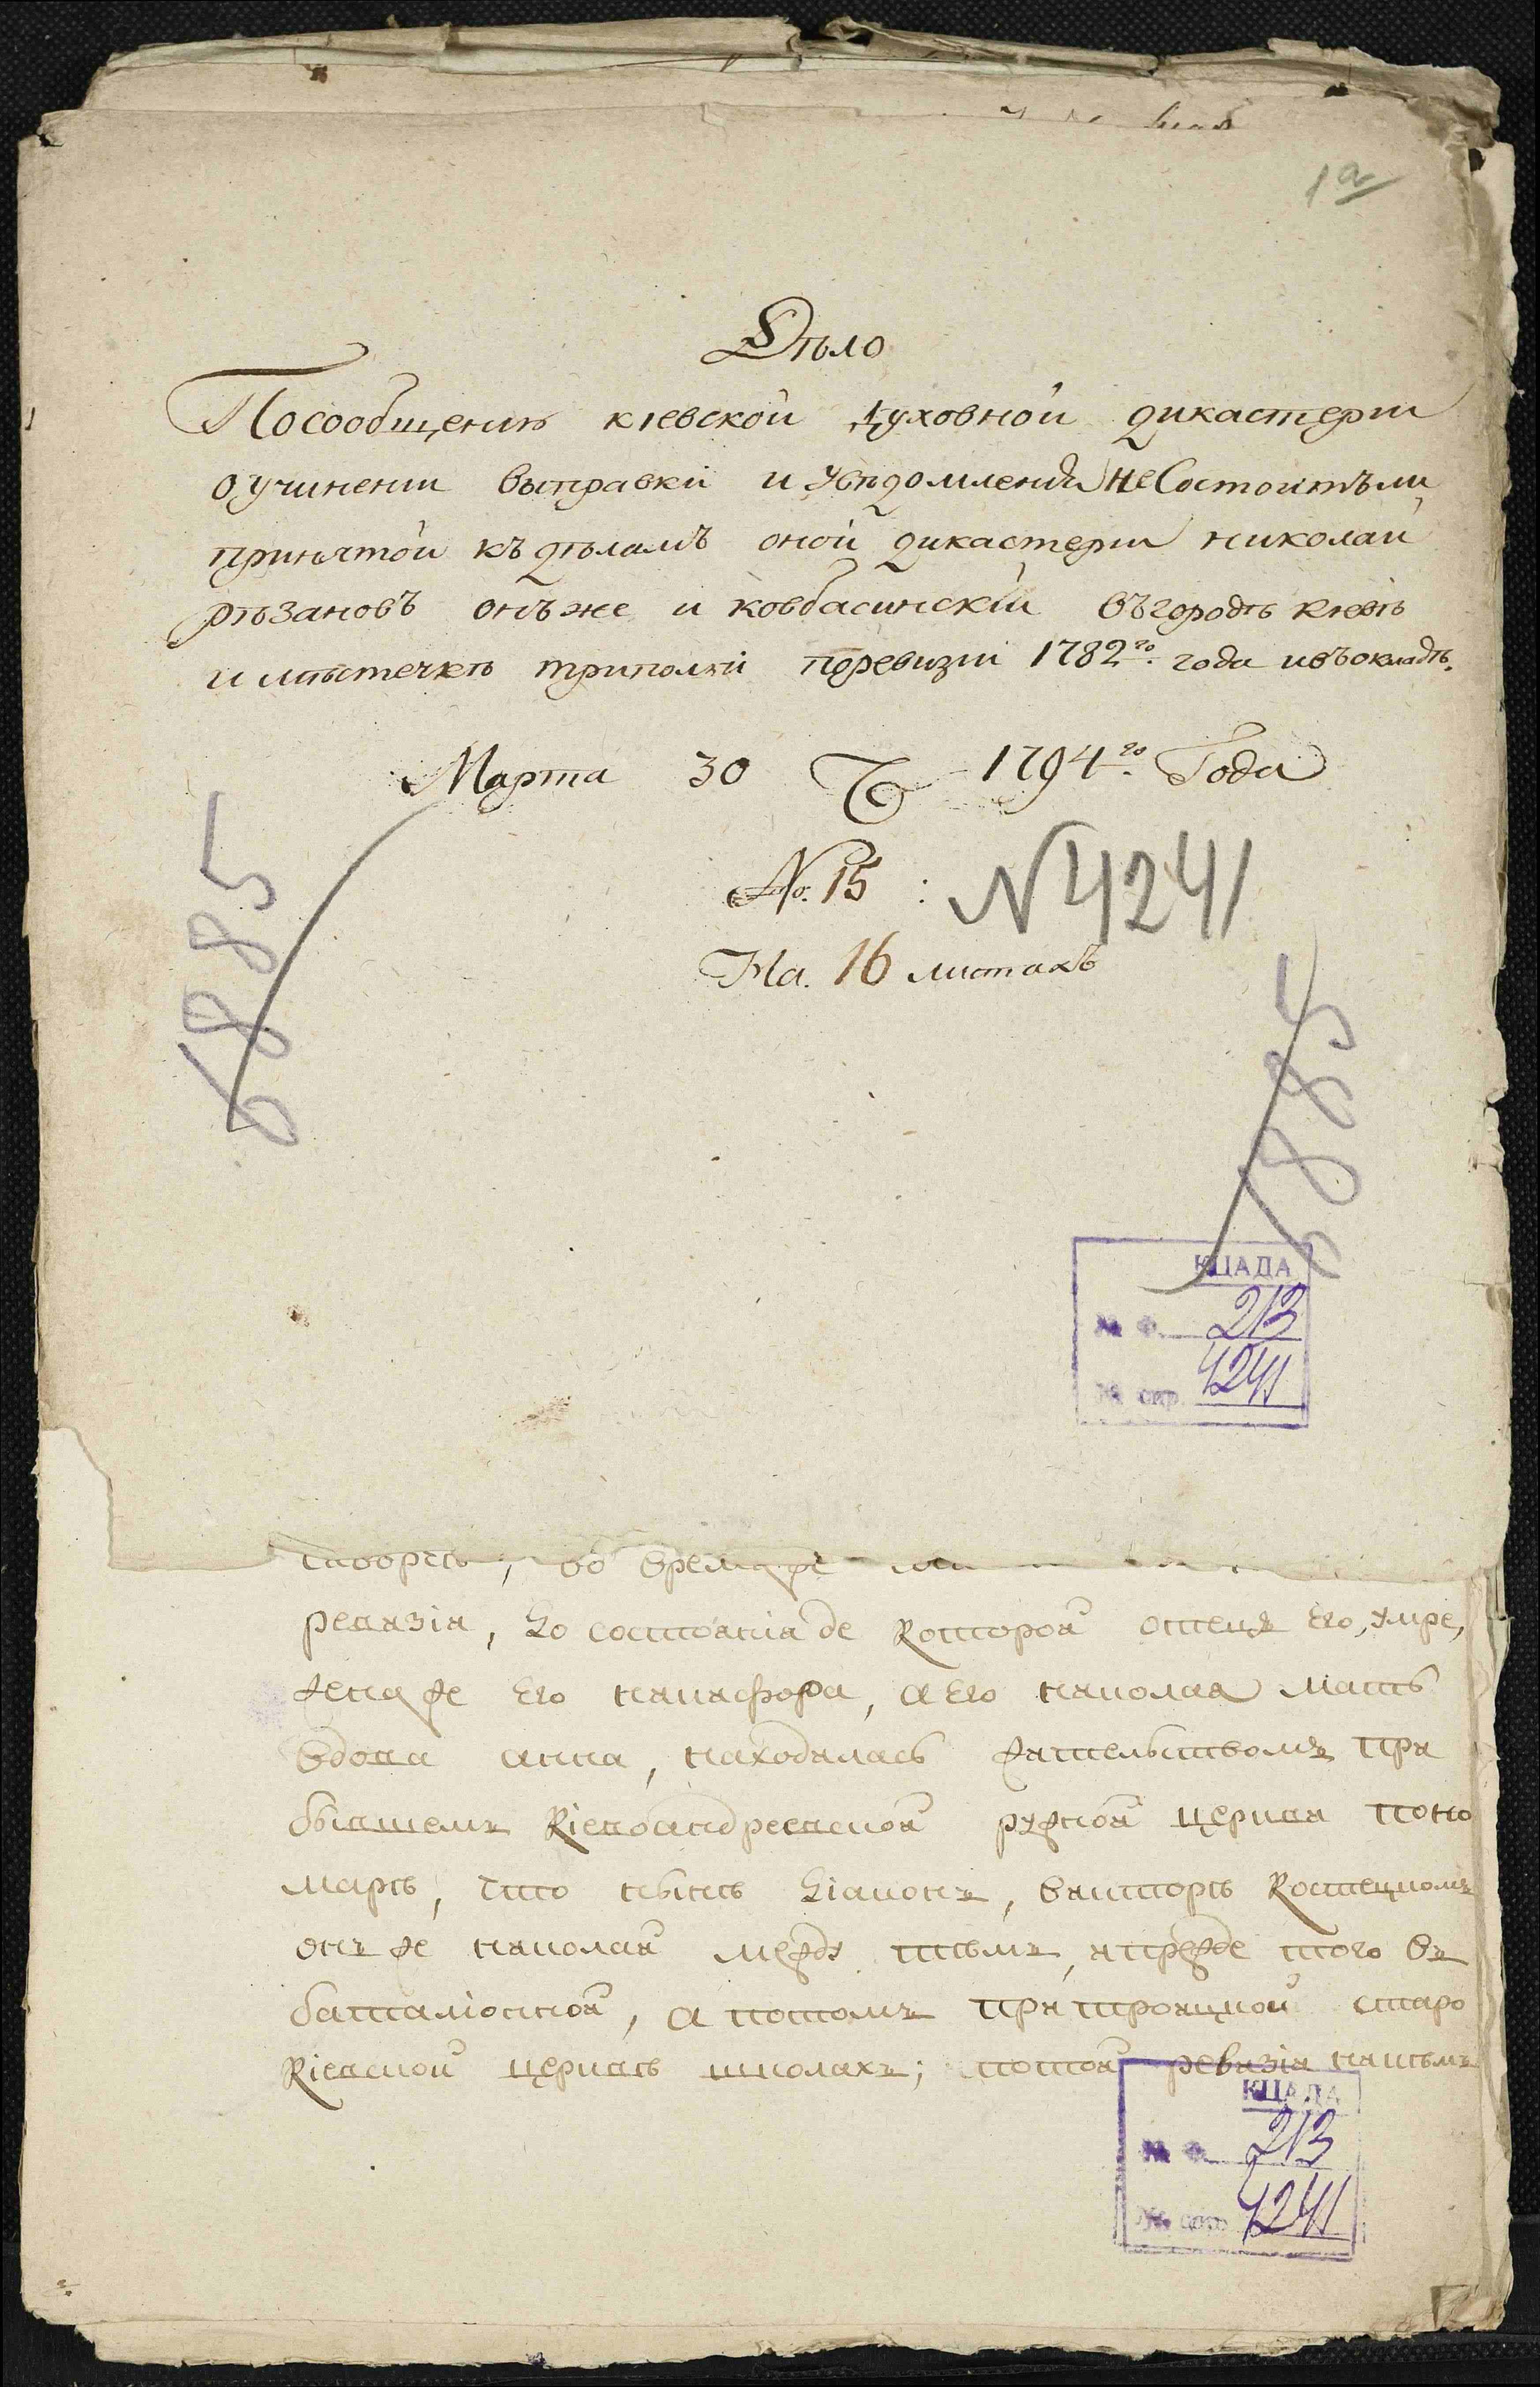 1а
Дѣло
Посообщению кіевской духовной дикастерiи
оучинении выправки и увѣдомления не Состоитъли
принятой къ дѣламъ оной дикастерiи николай
рѣзановъ онъже и ковбасинскiй въгородѣ кіевѣ
и мѣстечкѣ триполи поревизiи 1782го. года ивъокладѣ.
Марта 30 Ч 1794го. Года
№. 15 : N 4241
На. 16 листахъ
6885
6885
КЦАДА
№ Ф. 213
№ 4241
ревизiя, до состоянiя де которой отецъ его, умре,
жена же его никифора, а его николая мать
вдова анна, находилась жительствомъ при
бывшемъ кiевоандреевской ружной церкви поно
марѣ, что нынѣ дiакон, викторѣ костецкомъ
онъ же николай между тѣмъ, ипрежде того въ
баталiонной, а потомъ притроицкой старо
кiевской церквѣ школахъ; потой ревизiи нигдѣ
КЦАДА
№ Ф. 213
№ 4241